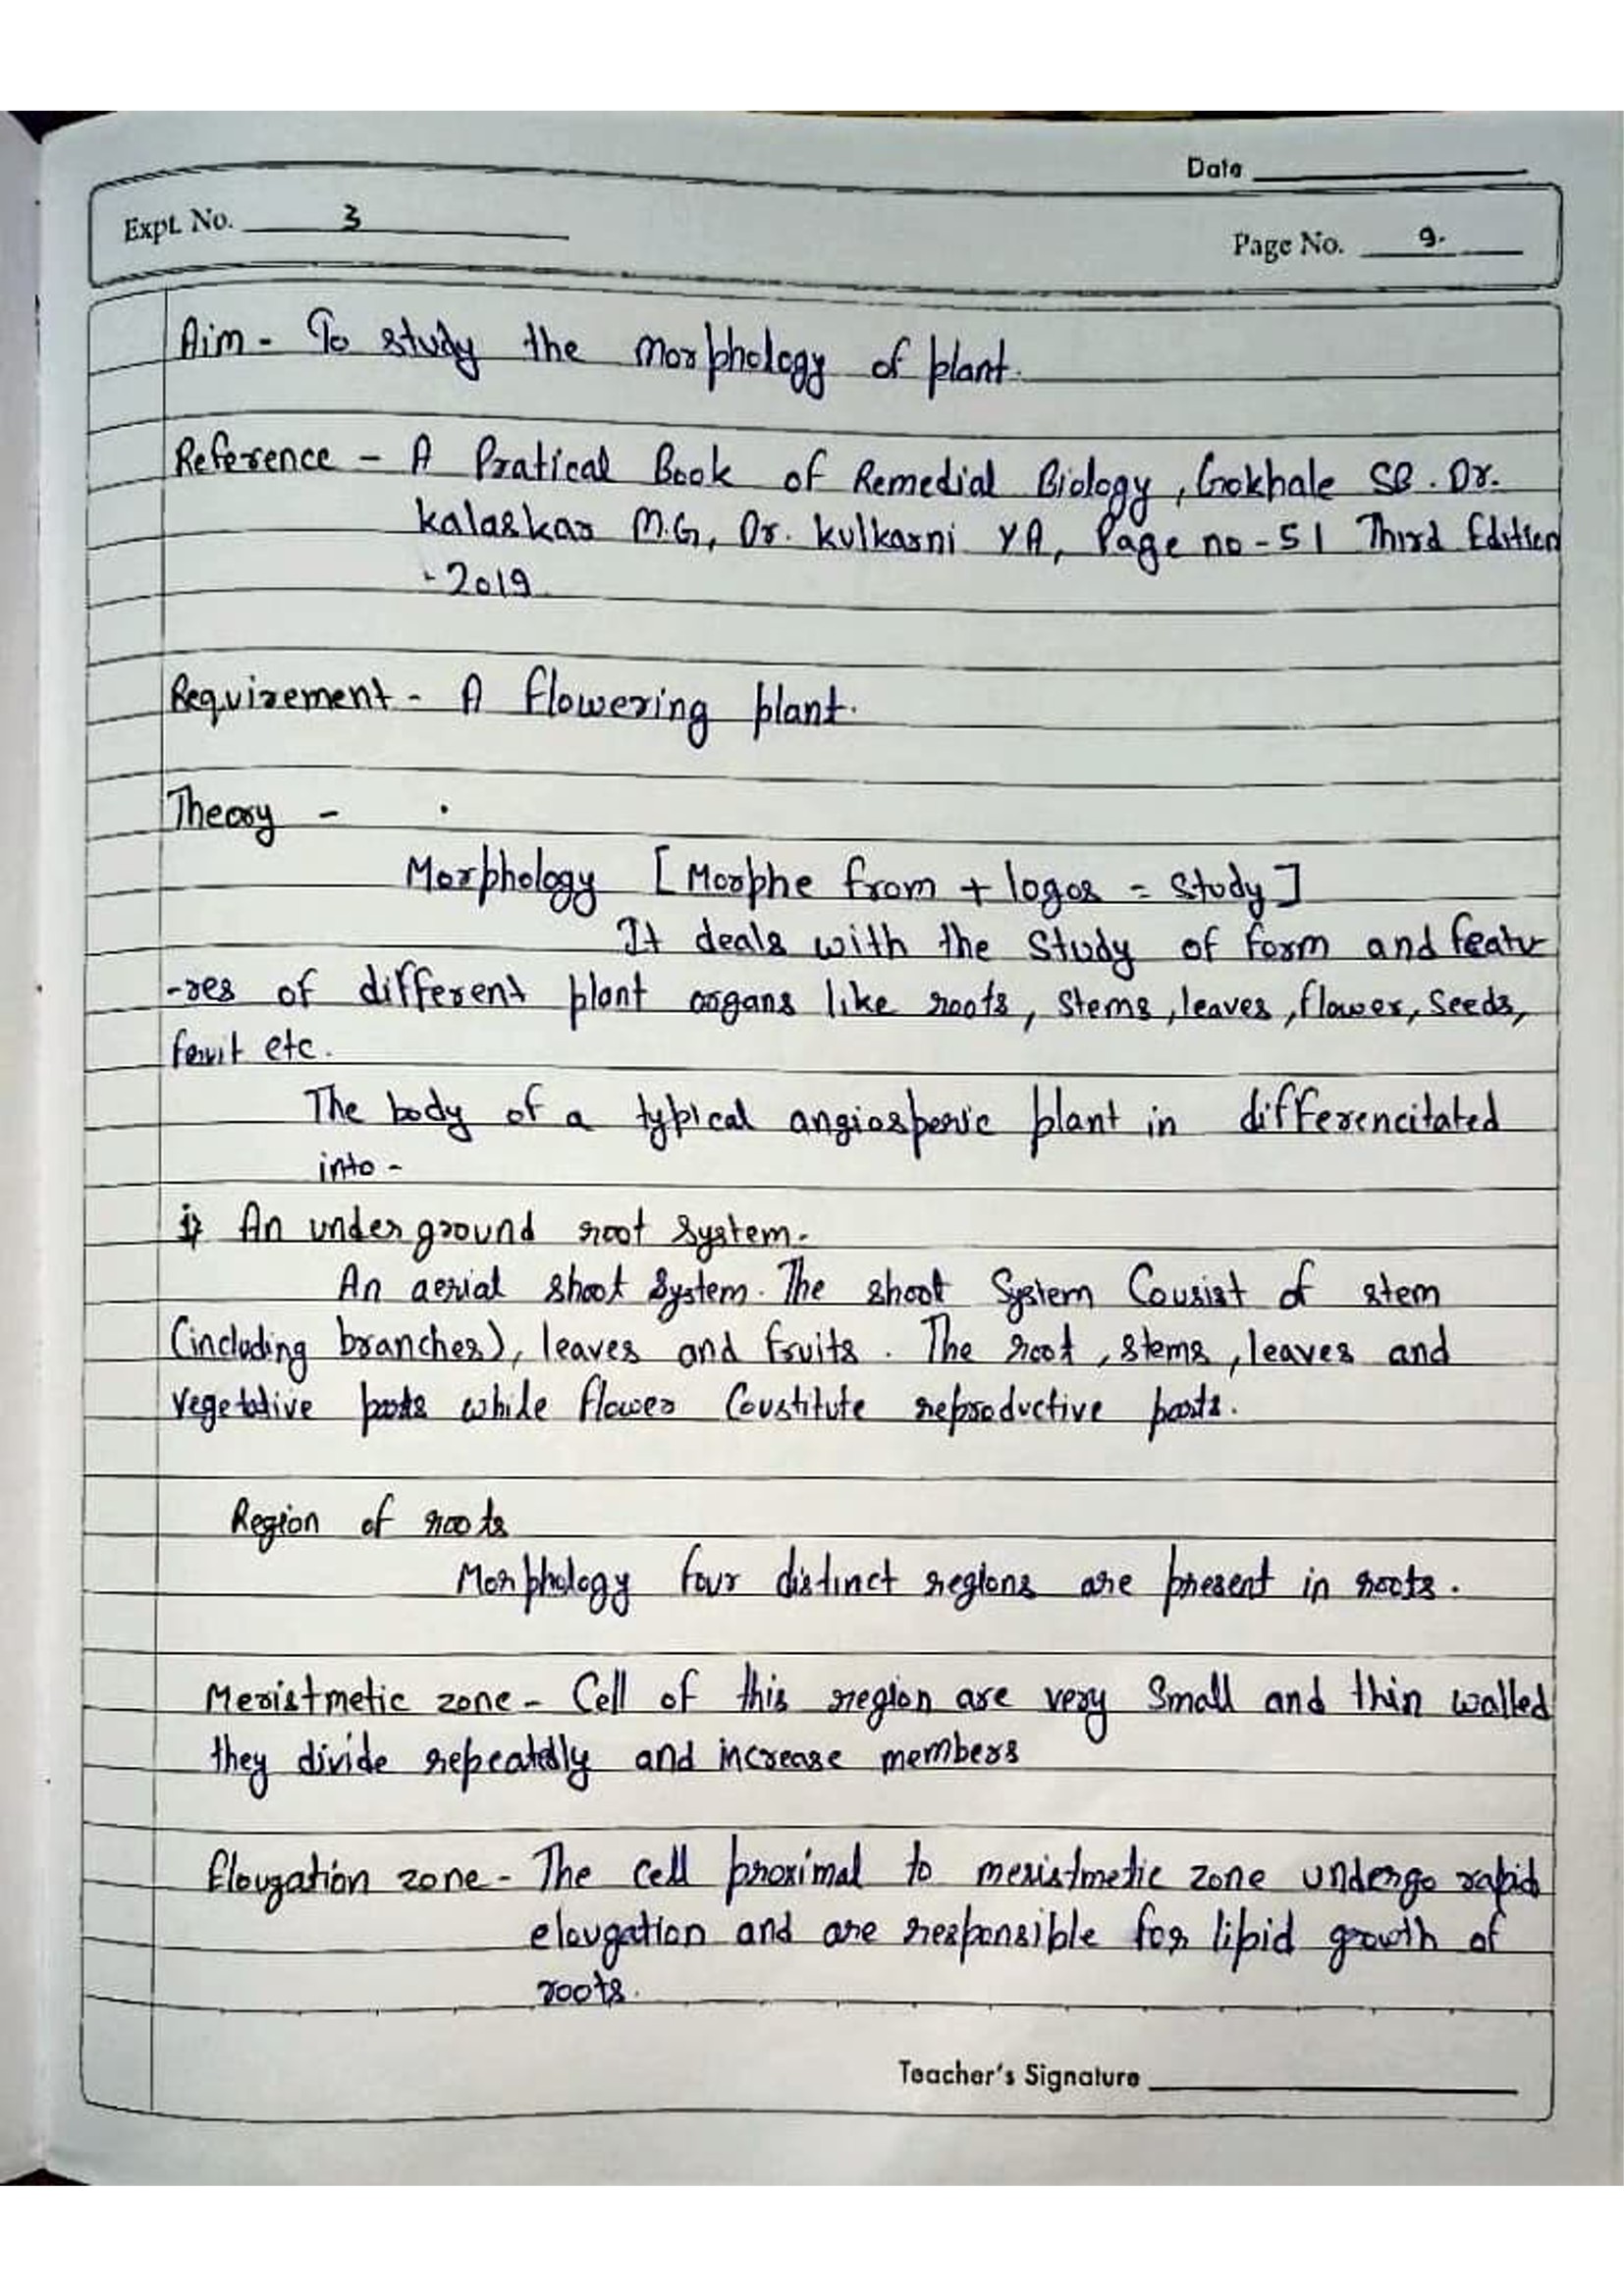 Date
Expt. No. 3
Page No. 9.
Aim - To study the morphology of plant.
Reference - A Pratical Book of Remedial Biology, Gokhale SB. Dr.
Kalaskar M.G, Dr. Kulkarni YA, Page no - 51 Third Edition
- 2019
Requirement - A flowering plant.
Theory -
Morphology [Morphe from + logos = study]
It deals with the study of form and featu
-res of different plant organs like roots, stems, leaves, flower, seeds,
fruit etc.
The body of a typical angiospermic plant in differencitated
into -
i) An underground root system.
An aerial shoot system. The shoot system Cousist of stem
(including branches), leaves and fruits. The root, stems, leaves and
vegetative parts while flower Coustitute reproductive parts.
Region of roots
Morphology four distinct regions are present in roots.
Meristmetic zone - Cell of this region are very small and thin walled
they divide repeatedly and increase members
Elougation zone - The cell proximal to meristmetic zone undergo rapid
elougation and are responsible for lipid growth of
roots.
Teacher's Signature